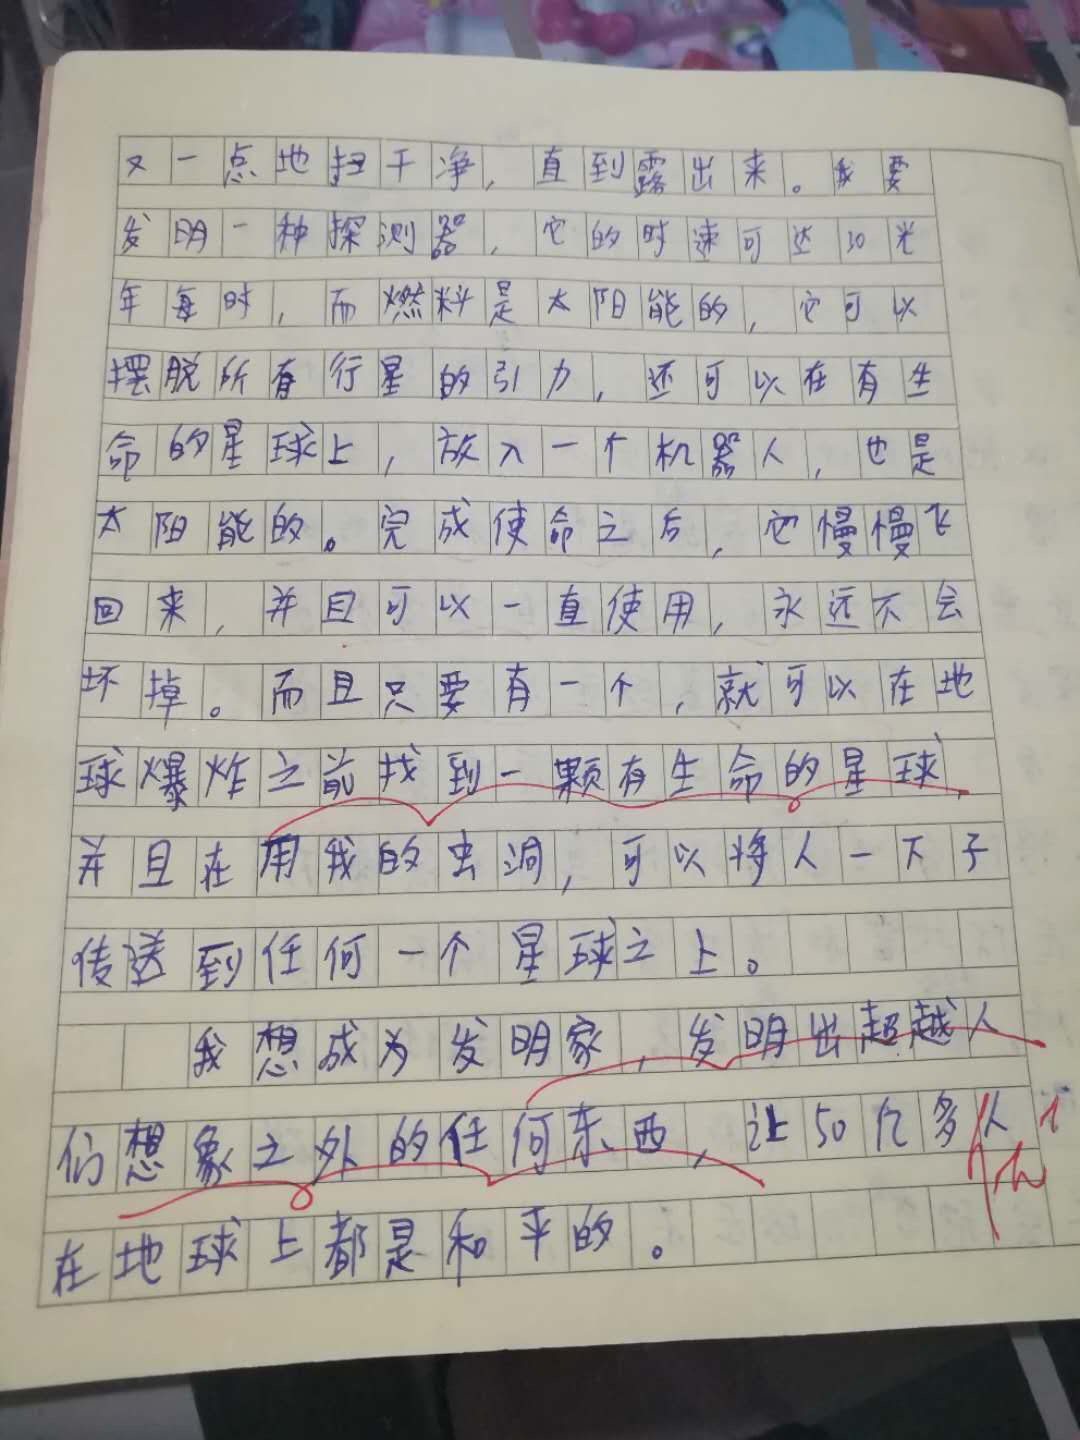 又一点地扫干净，直到露出来。我要
发明一种探测器，它的时速可达10光
年每时，而燃料是太阳能的，它可以
摆脱所有行星的引力，还可以在有生
命的星球上，放入一个机器人，也是
太阳能的。完成使命之后，它慢慢飞
回来，并且可以一直使用，永远不会
坏掉。而且只要有一个，就可以在地
球爆炸之前找到一颗有生命的星球，
并且在用我的虫洞，可以将人一下子
传送到任何一个星球之上。
我想成为发明家，发明出超越人
们想象之外的任何东西，让50亿多人
在地球上都是和平的。